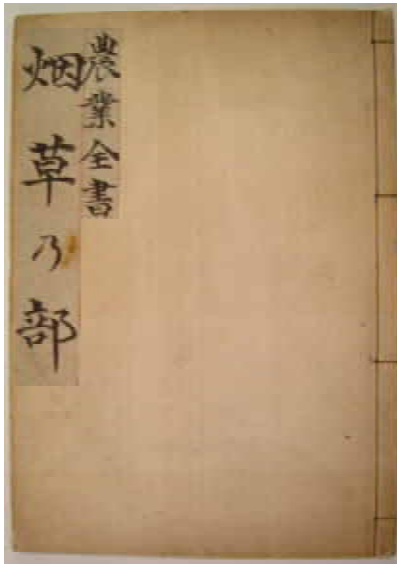 農業全書
烟草乃部